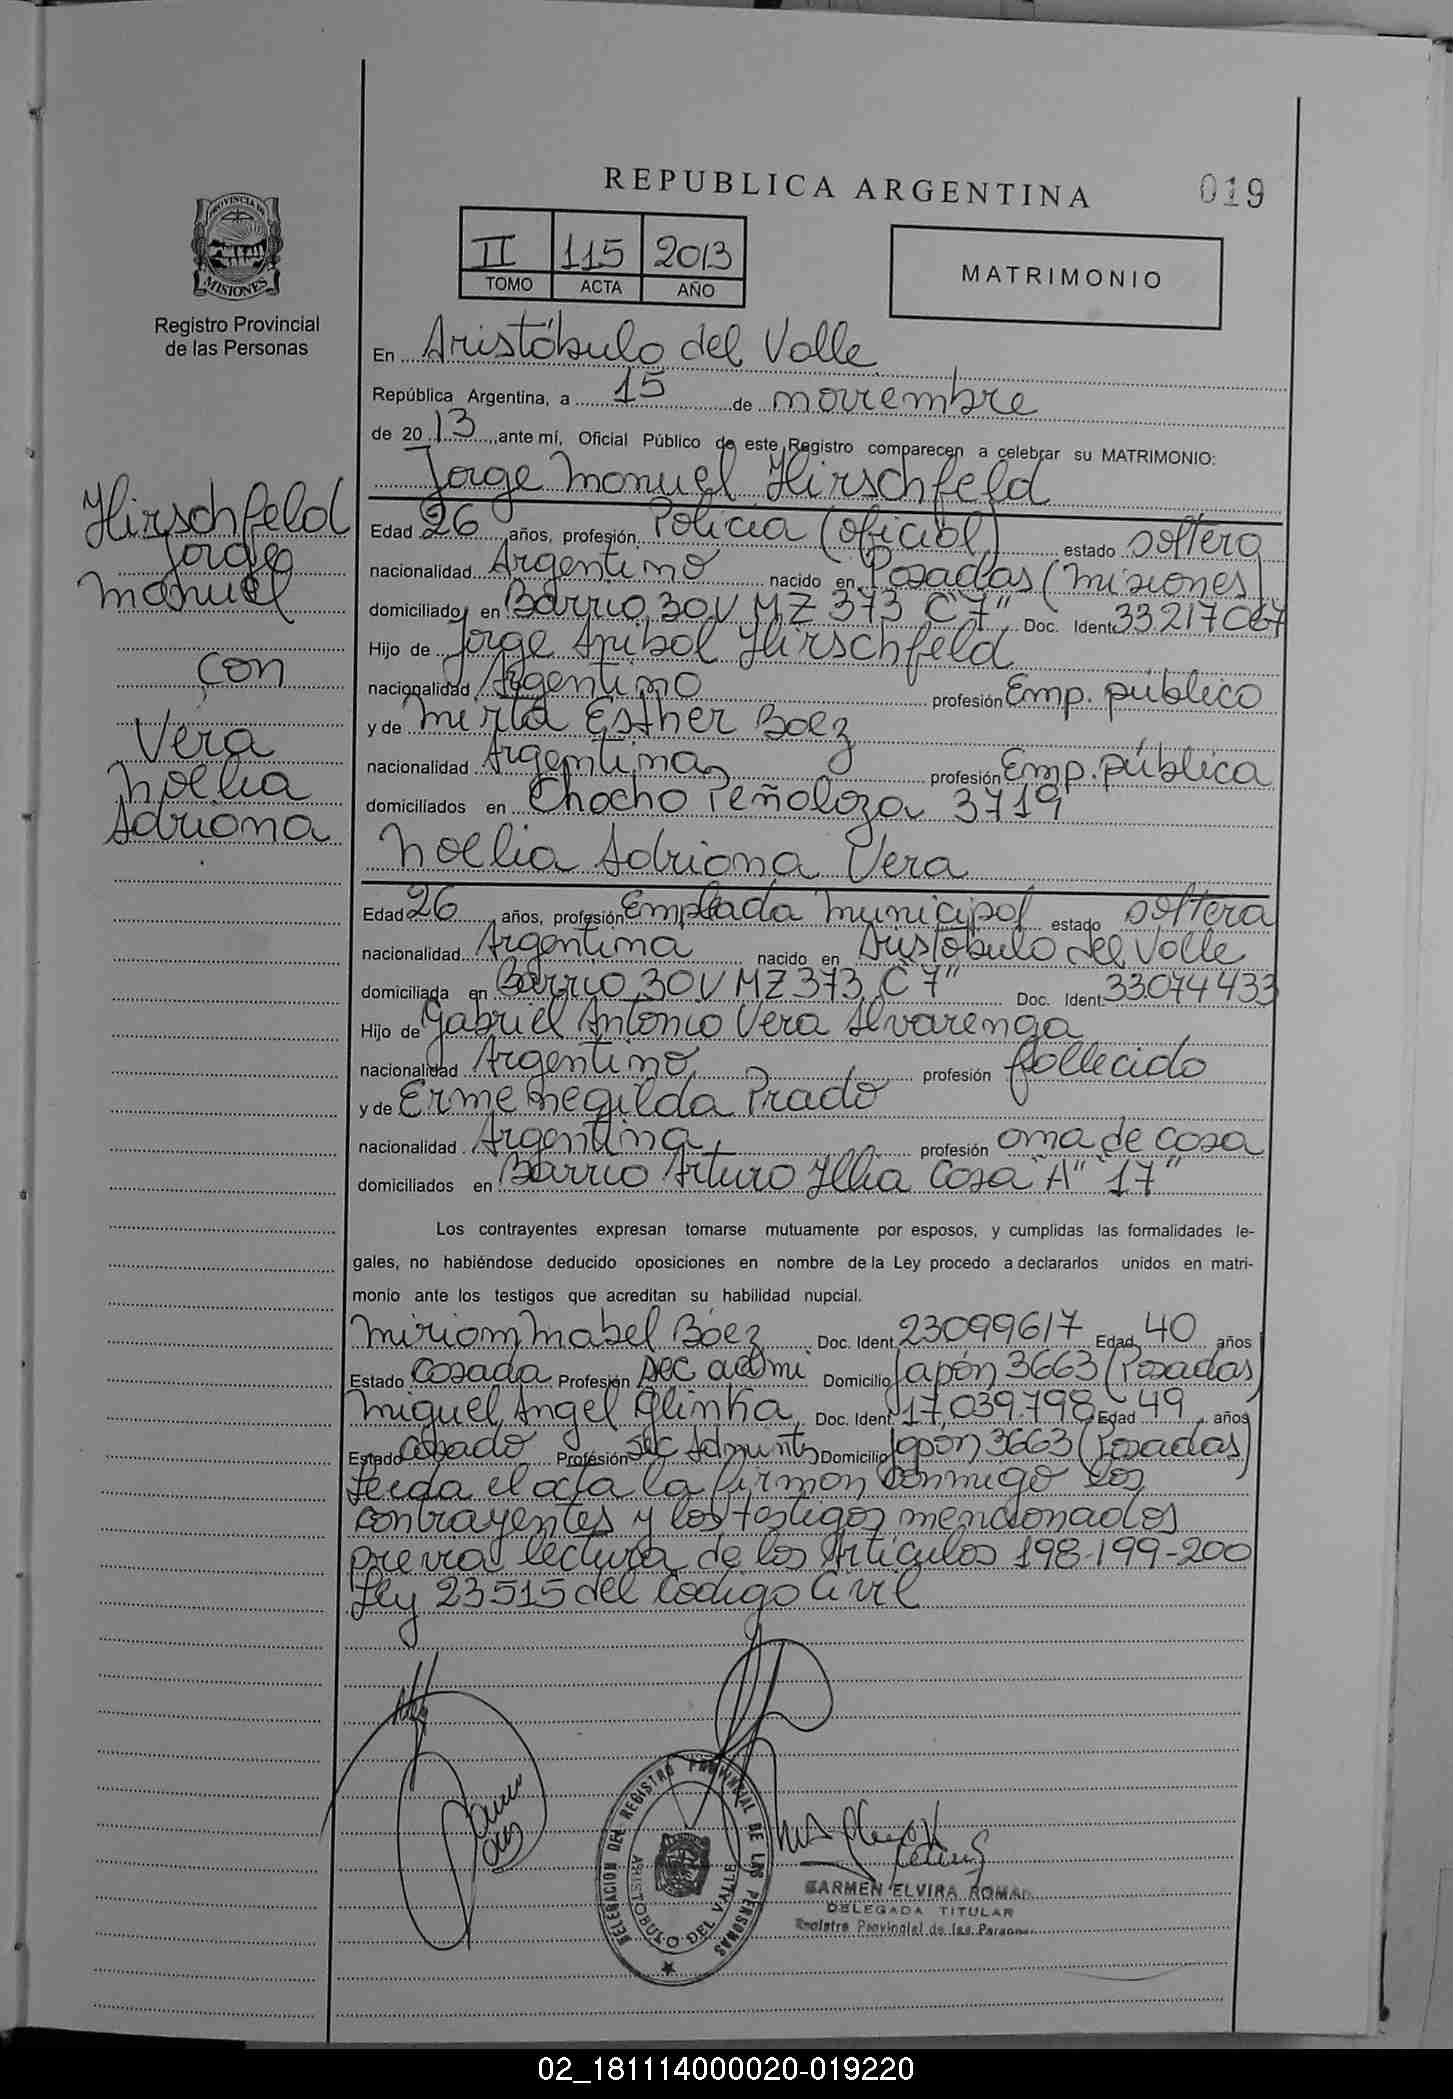 REPUBLICA ARGENTINA
019
PROVINCIA DE
MISIONES
Registro Provincial
de las Personas
II 115 2013
TOMO ACTA AÑO
MATRIMONIO
En Aristóbulo del Valle
República Argentina, a 15 de noviembre
de 2013 ante mí, Oficial Público de este Registro comparecen a celebrar su MATRIMONIO:
Jorge Manuel Hirschfeld
Hirschfeld
Jorge
Manuel
con
Vera
Noelia
Adriana
Edad 26 años, profesión Policía (oficial) estado soltero
nacionalidad Argentino nacido en Posadas (Misiones)
domiciliado en Barrio 30V MZ 373 C"7" Doc. Ident. 33217067
Hijo de Jorge Anibal Hirschfeld
nacionalidad Argentino profesión Emp. público
y de Mirta Esther Baez
nacionalidad Argentina profesión Emp. pública
domiciliados en Chacho Peñaloza 3719
Noelia Adriana Vera
Edad 26 años, profesión Empleada Municipal estado soltera
nacionalidad Argentina nacido en Aristóbulo del Valle
domiciliada en Barrio 30V MZ 373 C"7" Doc. Ident. 33074433
Hijo de Gabriel Antonio Vera Alvarenga
nacionalidad Argentino profesión fallecido
y de Ermenegilda Prado
nacionalidad Argentina profesión ama de casa
domiciliados en Barrio Arturo Illia Casa "A" "17"
Los contrayentes expresan tomarse mutuamente por esposos, y cumplidas las formalidades le-
gales, no habiéndose deducido oposiciones en nombre de la Ley procedo a declararlos unidos en matri-
monio ante los testigos que acreditan su habilidad nupcial.
Miriam Mabel Báez Doc. Ident. 23099617 Edad 40 años
Estado casada Profesión Sec admi Domicilio Japón 3663 (Posadas)
Miguel Angel Glinka Doc. Ident. 17.039.798 Edad 49 años
Estado casado Profesión Domicilio Japón 3663 (Posadas)
Leida el acta la firman conmigo los
contrayentes y los testigos mencionados
previa lectura de los Artículos 198-199-200
Ley 23515 del Codigo Civil
DELEGACION DEL REGISTRO PROVINCIAL DE LAS PERSONAS
ARISTOBULO DEL VALLE
CARMEN ELVIRA ROMAN
DELEGADA TITULAR
Registro Provincial de las Personas
02_181114000020-019220